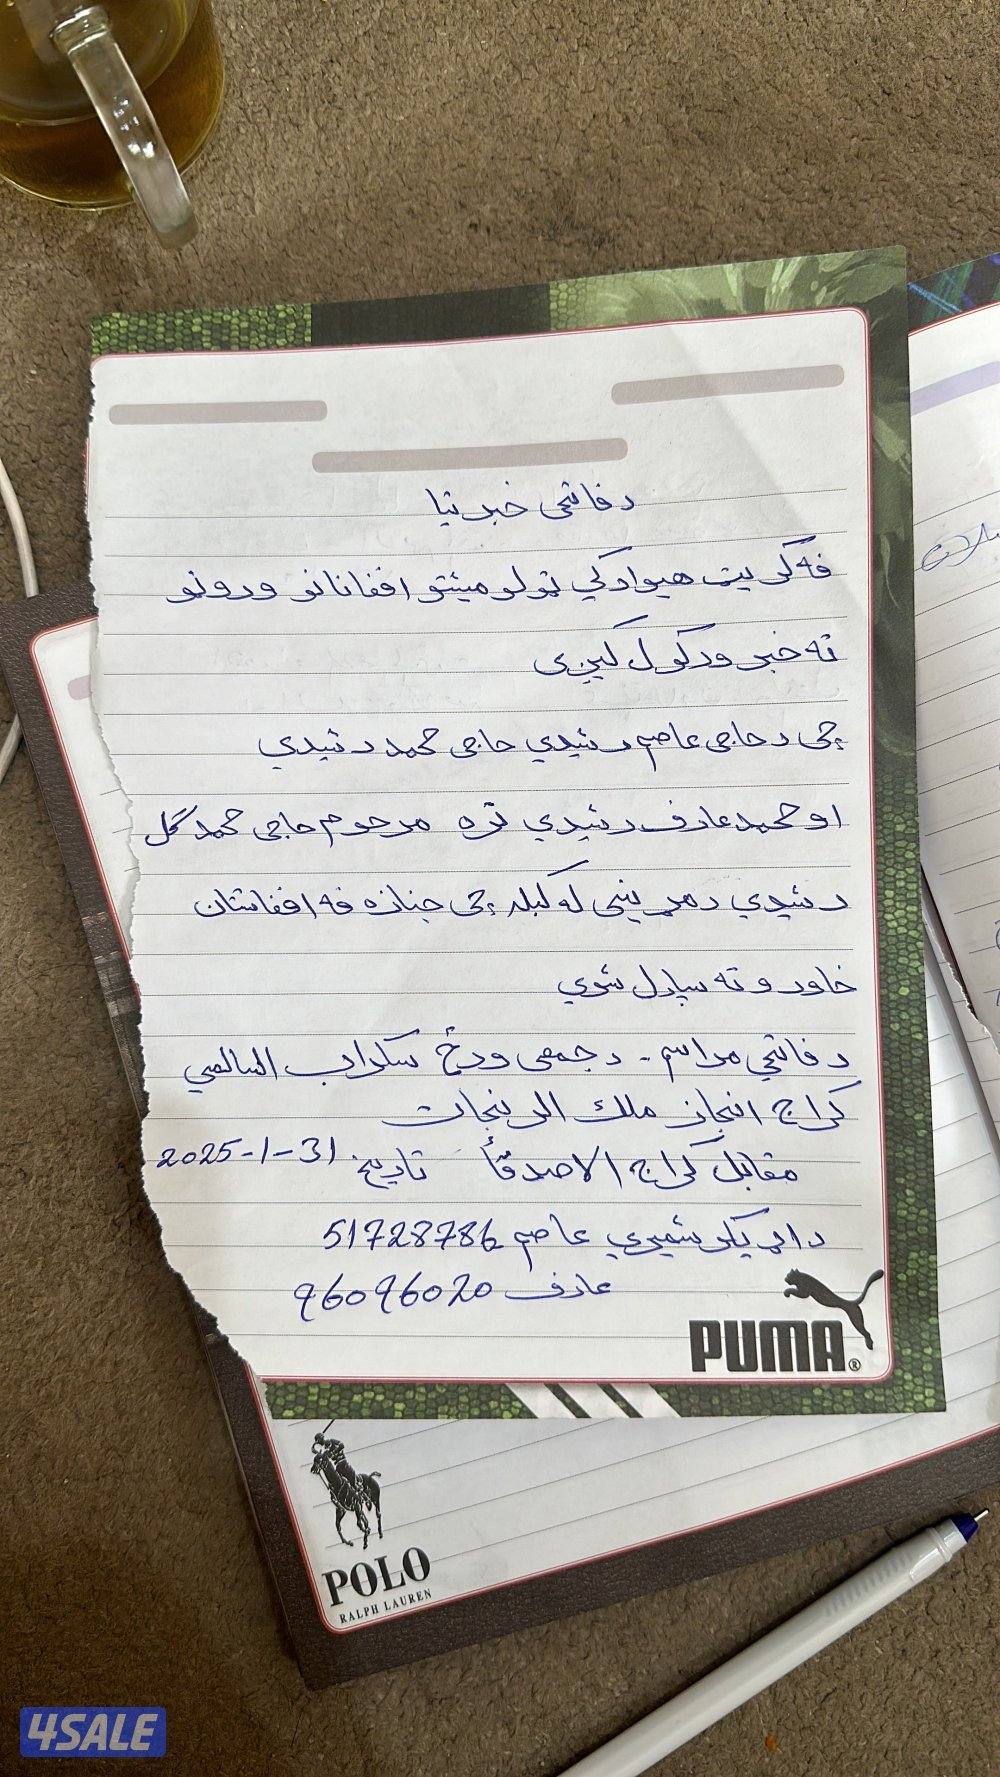 د فاتحی خبرتیا
فه کویټ هیواد کي ټولو میشتو افغانانو ورونو
ته خبر ورکول کیږی
چی د حاجی عاصم رشیدي حاجی حمید رشیدي
او حمید عارف رشیدي تره مرحوم حاجی محمد گل
رشیدي د مړینی له کبله چی جنازه فه افغانستان
خاورو ته سپارل شوي
د فاتحي مراسم - د جمعی ورځ سکراب السالمي
کراج انجاز ملك الرینجات
مقابل کراج الاصدقأ تاریخ 31-1-2025
د اړیکو شمیري عاصم 51728786
عارف 96096020
PUMA®
POLO
RALPH LAUREN
4SALE